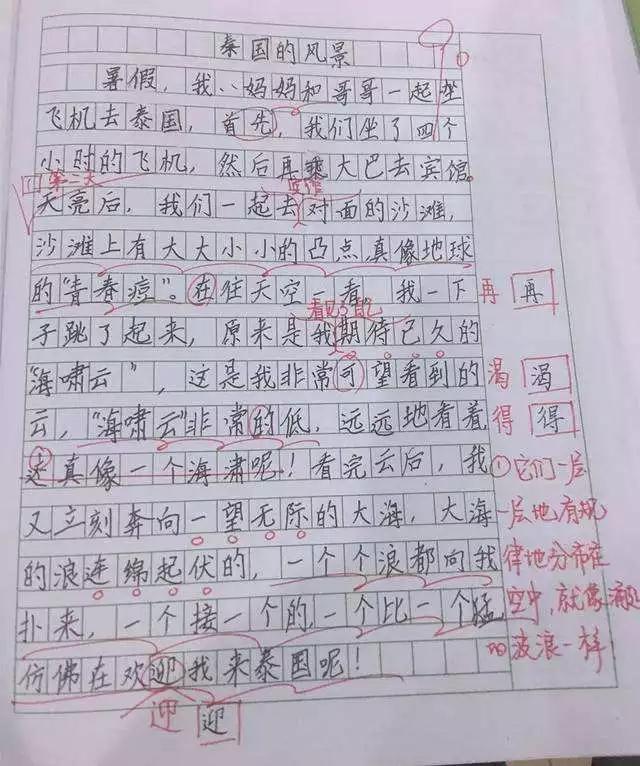 泰国的风景
暑假，我、妈妈和哥哥一起坐
飞机去泰国，首先，我们坐了四个
小时的飞机，然后再乘大巴去宾馆。
第二天
天亮后，我们一起去对面的沙滩，
沙滩上有大大小小的凸点，真像地球
的“青春痘”。在住天空一看，我一下 再 再
看见了自己
子跳了起来，原来是我期待已久的
“海啸云”，这是我非常可望看到的 渴 渴
云，“海啸云”非常的低，远远地看着 得 得
①这真像一个海啸呢！看完云后，我 ①它们一层
又立刻奔向一望无际的大海，大海 一层地有规
的浪连绵起伏的，一个个浪都向我 律地分布在
扑来，一个接一个的，一个比一个猛 空中，就像海
仿佛在欢迎我来泰国呢！ 的波浪一样
迎 迎